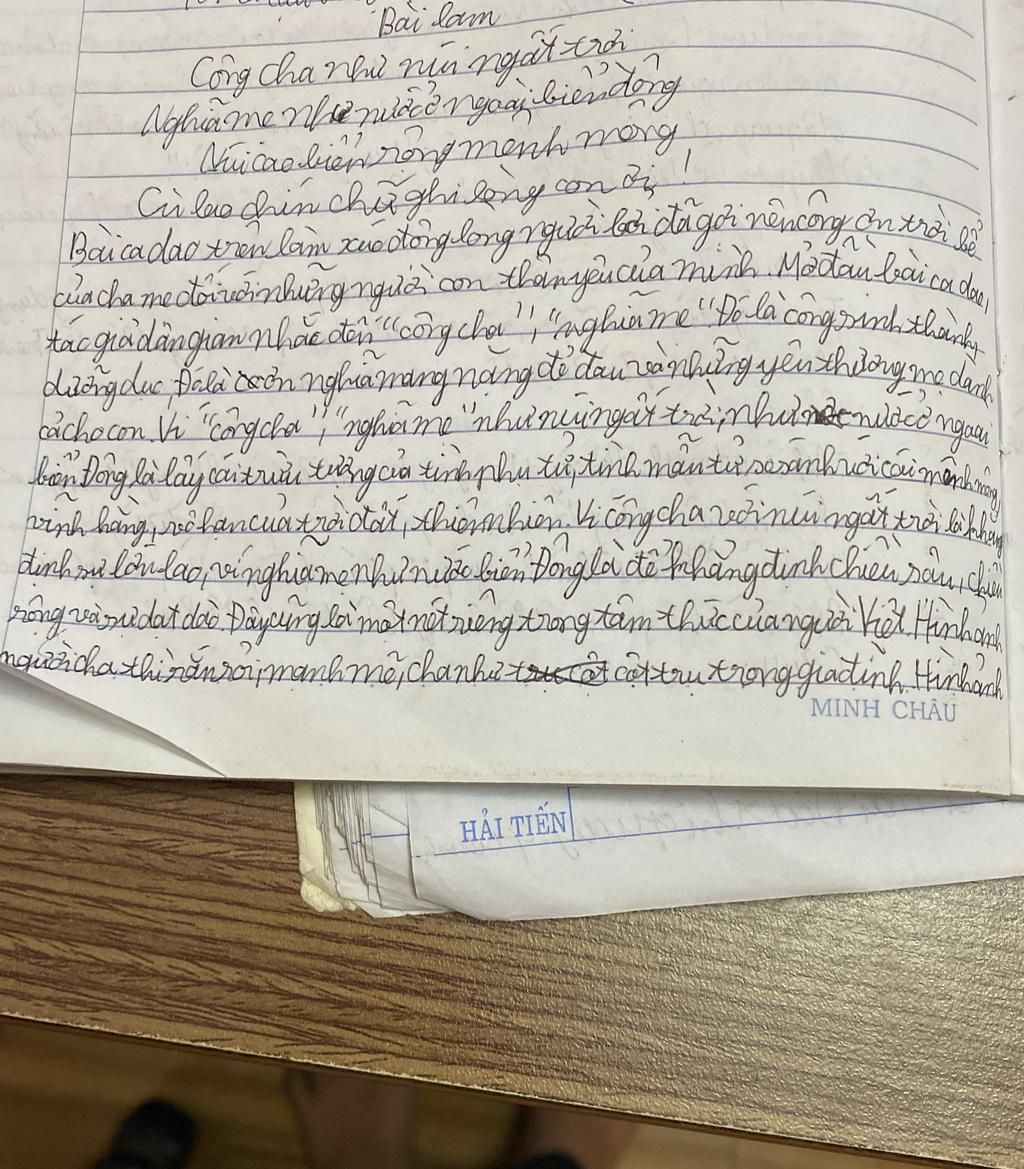 Bài làm
Công cha như núi ngất trời
Nghĩa mẹ như nước ở ngoài biển đông
Núi cao biển rộng mênh mông
Cù lao chín chữ ghi lòng con ơi !
Bài ca dao trên làm xúc động lòng người bởi đã gợi nên công ơn trời bể
của cha mẹ đối với những người con thân yêu của mình. Mở đầu bài ca dao,
tác giả dân gian nhắc đến "công cha", "nghĩa mẹ" Đó là công sinh thành,
dưỡng dục. Đó là ơn nghĩa mang nặng đẻ đau và những yêu thương mẹ dành
cả cho con. Ví "công cha", "nghĩa mẹ" như núi ngất trời, như nước ở ngoài
biển Đông là lấy cái trừu tượng của tình phụ tử, tình mẫu tử so sánh với cái mênh mông
vĩnh hằng, vô hạn của trời đất, thiên nhiên. Ví công cha với núi ngất trời là khẳng
định sự lớn lao, ví nghĩa mẹ như nước biển Đông là để khẳng định chiều sâu, chiều
rộng và sự dạt dào. Đây cũng là một nét riêng trong tâm thức của người Việt. Hình ảnh
người cha thì rắn rỏi, mạnh mẽ, cha như cột trụ trong gia đình. Hình ảnh
MINH CHÂU
HẢI TIẾN